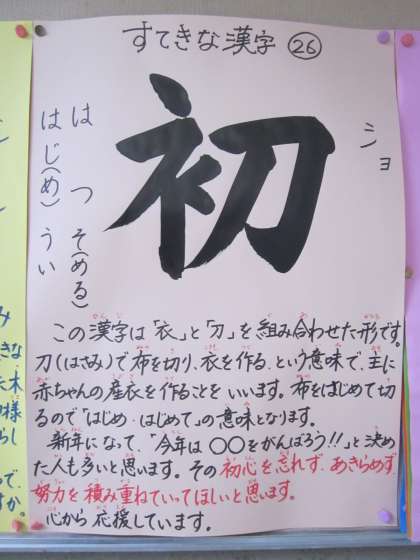 すてきな漢字 26
初
ショ
は つ そ(める)
はじ(め) うい
この漢字は「衣」と「刀」を組み合わせた形です。
刀(はさみ)で布を切り、衣を作る、という意味で、主に
赤ちゃんの産衣を作ることをいいます。布をはじめて切
るので「はじめ・はじめて」の意味となります。
新年になって、「今年は〇〇をがんばろう!!」と決め
た人も多いと思います。その初心を忘れず、あきらめず、
努力を積み重ねていってほしいと思います。
心から応援しています。